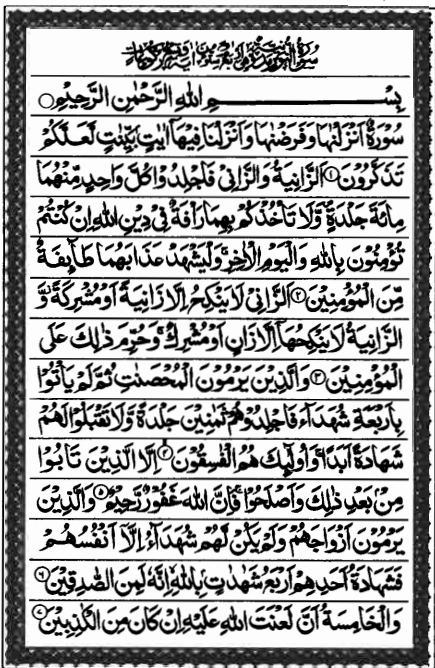 بِسْــــــــمِ اللهِ الرَّحْمٰنِ الرَّحِيْمِ ○
سُوْرَةٌ اَنْزَلْنٰهَا وَفَرَضْنٰهَا وَاَنْزَلْنَا فِيْهَآ اٰيٰتٍۭ بَيِّنٰتٍ لَّعَلَّكُمْ
تَذَكَّرُوْنَ ۝۱ اَلزَّانِيَةُ وَالزَّانِيْ فَاجْلِدُوْا كُلَّ وَاحِدٍ مِّنْهُمَا
مِائَةَ جَلْدَةٍ ۪ وَّلَا تَاْخُذْكُمْ بِهِمَا رَاْفَةٌ فِيْ دِيْنِ اللهِ اِنْ كُنْتُمْ
تُؤْمِنُوْنَ بِاللهِ وَالْيَوْمِ الْاٰخِرِ ۚ وَلْيَشْهَدْ عَذَابَهُمَا طَآئِفَةٌ
مِّنَ الْمُؤْمِنِيْنَ ۝۲ اَلزَّانِيْ لَا يَنْكِحُ اِلَّا زَانِيَةً اَوْ مُشْرِكَةً ؗ وَّ
الزَّانِيَةُ لَا يَنْكِحُهَآ اِلَّا زَانٍ اَوْ مُشْرِكٌ ۚ وَحُرِّمَ ذٰلِكَ عَلَى
الْمُؤْمِنِيْنَ ۝۳ وَالَّذِيْنَ يَرْمُوْنَ الْمُحْصَنٰتِ ثُمَّ لَمْ يَاْتُوْا
بِاَرْبَعَةِ شُهَدَآءَ فَاجْلِدُوْهُمْ ثَمٰنِيْنَ جَلْدَةً وَّلَا تَقْبَلُوْا لَهُمْ
شَهَادَةً اَبَدًا ۚ وَاُولٰٓئِكَ هُمُ الْفٰسِقُوْنَ ۝۴ اِلَّا الَّذِيْنَ تَابُوْا
مِنْۢ بَعْدِ ذٰلِكَ وَاَصْلَحُوْا ۚ فَاِنَّ اللهَ غَفُوْرٌ رَّحِيْمٌ ۝۵ وَالَّذِيْنَ
يَرْمُوْنَ اَزْوَاجَهُمْ وَلَمْ يَكُنْ لَّهُمْ شُهَدَآءُ اِلَّآ اَنْفُسُهُمْ
فَشَهَادَةُ اَحَدِهِمْ اَرْبَعُ شَهٰدٰتٍۭ بِاللهِ ۙ اِنَّهٗ لَمِنَ الصّٰدِقِيْنَ ۝۶
وَالْخَامِسَةُ اَنَّ لَعْنَتَ اللهِ عَلَيْهِ اِنْ كَانَ مِنَ الْكٰذِبِيْنَ ۝۷